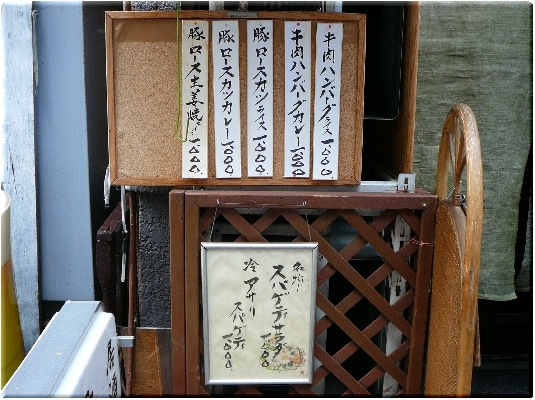 牛肉ハンバーグライス一、〇〇〇
牛肉ハンバーグカレー一、〇〇〇
豚ロースカツライス一、〇〇〇
豚ロースカツカレー一、〇〇〇
豚ロース生姜焼き一、〇〇〇
名物！
スパゲティサラダ
一、〇〇〇
冷アサリ
スパゲティ
一、〇〇〇